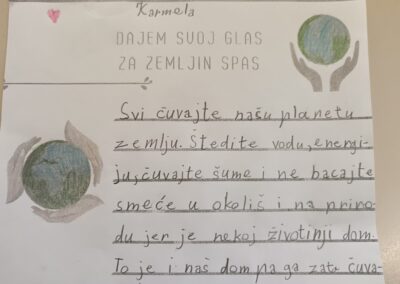 Karmela
DAJEM SVOJ GLAS
ZA ZEMLJIN SPAS
Svi čuvajte našu planetu
zemlju. Štedite vodu, energi-
ju, čuvajte šume i ne bacajte
smeće u okoliš i na priro-
du jer je nekoj životinji dom.
To je i naš dom pa ga zato čuva-